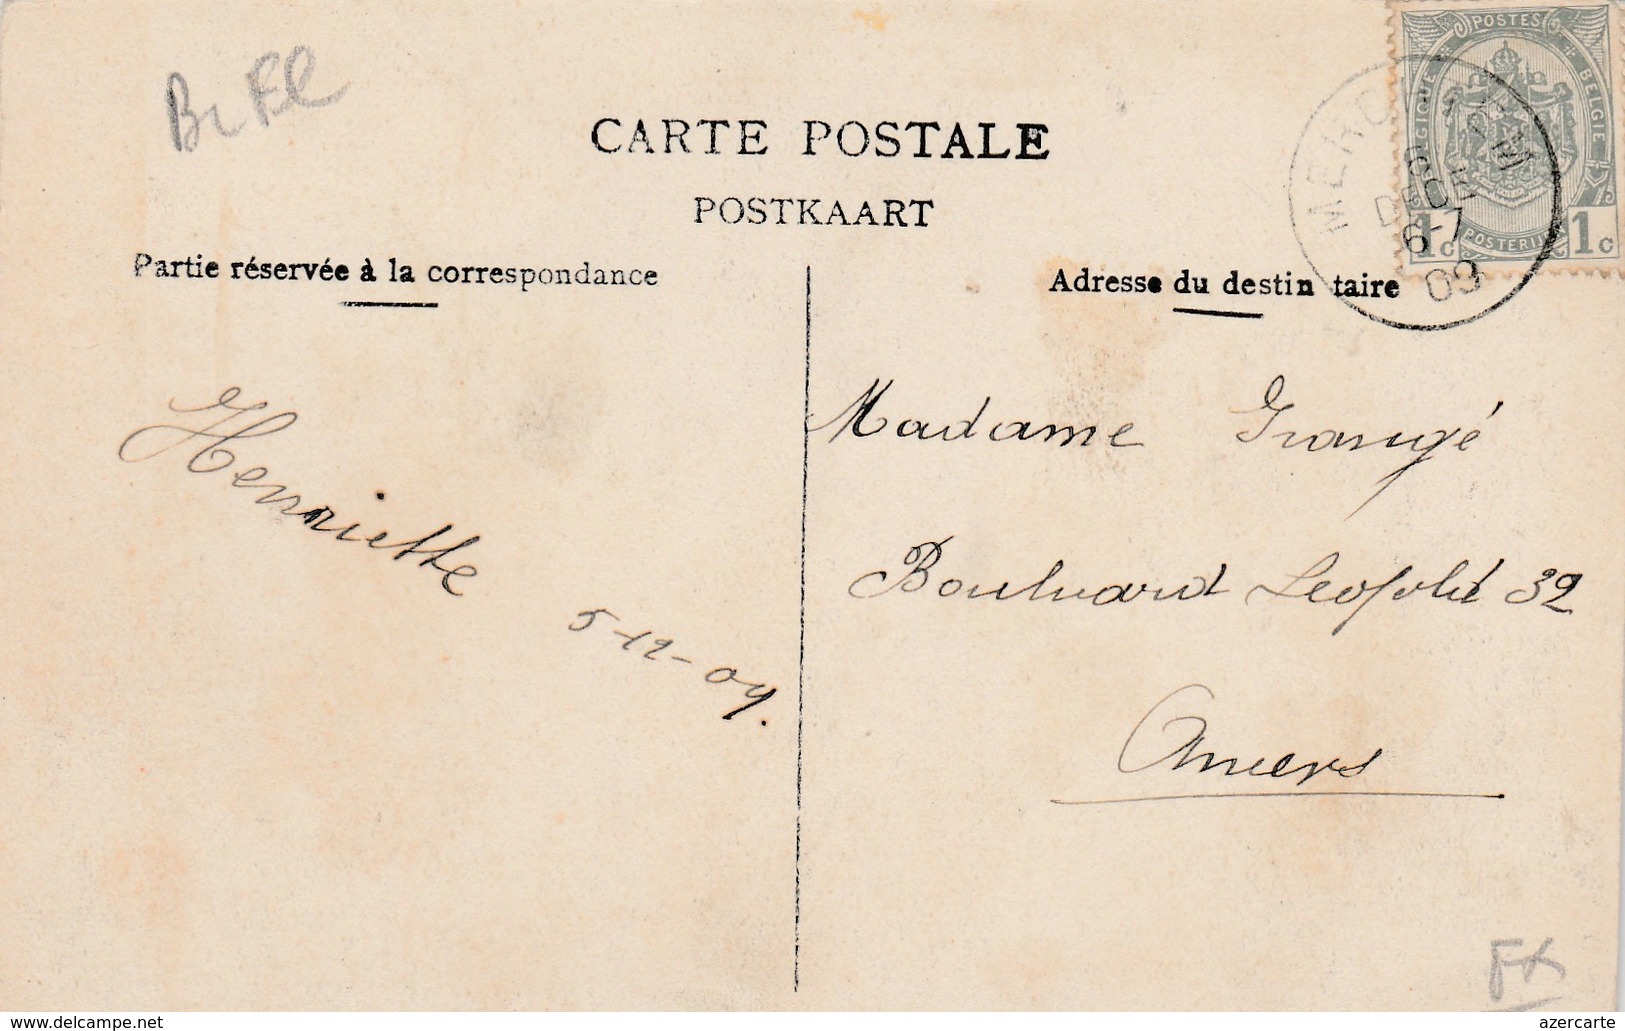 Br Fl
CARTE POSTALE
POSTKAART
Partie réservée à la correspondance
Adresse du destin taire
POSTES
BELGIQUE
BELGIE
POSTERIJEN
1c 1c
DEC
6-7
09
Henriette
5-12-09.
Madame Grangé
Boulevard Léopold 32
Anvers
www.delcampe.net
azercarte